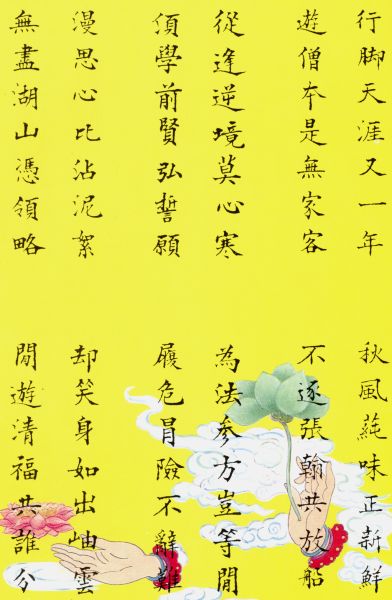 行脚天涯又一年
秋風蒓味正新鮮
遊僧本是無家客
不逐張翰共放船
從逢逆境莫心寒
為法參方豈等閒
須學前賢弘誓願
履危冒險不辭難
漫思心比沾泥絮
却笑身如出岫雲
無盡湖山憑領略
閒遊清福共誰分